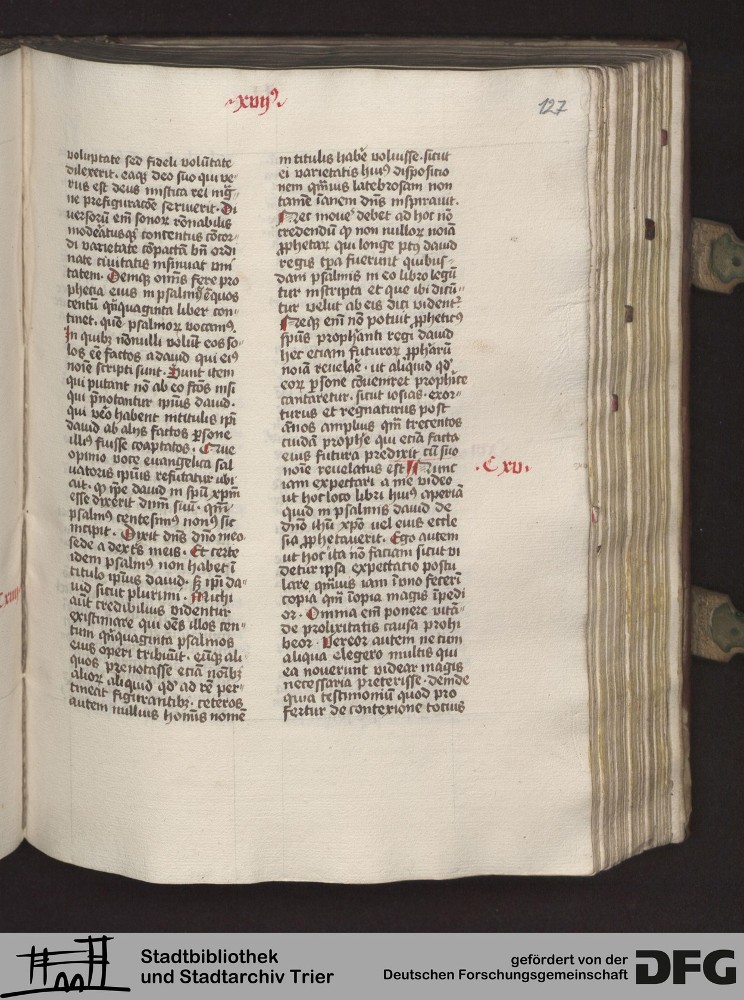 xvijꝰ
127
voluptate sed fideli volūtate
dilexerit. eaqꝫ deo suo qui ve-
rus est deus mistica rei mag̅-
ne prefiguracōe seruierit. Di
uersorū em̄ sonorꝝ rōnabilis
moderatusqꝫ concentus cōcor-
di varietate cōpactā bn̄ ordi
nate ciuitatis insinuat vni
tatem. Deniqꝫ omīs fere pro
phecia eius in psalmis ē quos
centū qn̄quaginta liber con-
tinet. quē psalmorꝝ vocamꝰ.
In quibꝫ nōnulli volūt eos so-
los eē factos a dauid qui eiꝰ
noīe scripti sunt. Sunt item
qui putant nō ab eo fc̄os nisi
qui p̄notantur ipsius dauid.
qui vero habent in titulis ip̄i
dauid ab alijs factos persone
illiꝰ fuisse coaptatos. Que
opinio voce euangelica sal
uatoris ipsius refutatur vbi
ait. ꝙ ip̄e dauid in sp̄u xp̄m
esse dixerit dn̄m suū. qm̄
psalmꝰ centesimꝰ nonꝰ sic
incipit. Dixit dn̄s dn̄o meo
sede a dextris meis. Et certe
idem psalmꝰ non habet ī
titulo ipsius dauid. sꝫ ip̄i da-
uid sicut plurimi. Michi
aūt credibilius videntur
existimare qui oēs illos cen-
tum qn̄quaginta psalmos
eius operi tribuūt. eūqꝫ ali-
quos prenotasse etiā noībꝫ
aliorꝝ aliquid qd̄ ad rē per-
tineat figurantibꝫ. ceteros
autem nullius homīs nomē
in titulis habere voluisse. sicut
ei varietatis huiꝰ disposicio
nem qm̄uis latebrosam non
tamē inanem dn̄s inspirauit.
Nec mouere debet ad hoc nō
credendū ꝙ non nullorꝝ noīa
ꝓphetarꝝ qui longe post dauid
regis tp̄a fuerunt quibus-
dam psalmis in eo libro legū
tur inscripta et que ibi dicū-
tur velut ab eis dici vident̄.
Neqꝫ em̄ nō potuit ꝓpheticꝰ
spūs prophanti regi dauid
hec etiam futurorꝝ ꝓpharū
noīa reuelare. ut aliquid qd̄
eorꝝ persone cōueniret prophice
cantaretur. sicut iosias exor-
turus et regnaturus post
ānos amplius qm̄ trecentos
cuidā prophe qui etiā facta
eius futura predixit cū suo
noīe reuelatus est. Nunc
iam expectari a me video
ut hoc loco libri huiꝰ aperiā
quid in psalmis dauid de
dn̄o ihū xp̄o uel eius eccle
sia ꝓphetauerit. Ego autem
ut hoc ita nō faciam sicut vi
detur ipsa expectacio postu
lare qm̄uis iam ī uno fecerī
copia qm̄ īopia magis īpedi
or. Omnia em̄ ponere vitā-
de prolixitatis causa prohi
beor. Vereor autem ne cum
aliqua elegero multis qui
ea nouerunt videar magis
necessaria preterisse. deinde
quia testimoniū quod pro
fertur de contexione tocius
.C xv.
Stadtbibliothek
und Stadtarchiv Trier
gefördert von der
Deutschen Forschungsgemeinschaft
DFG